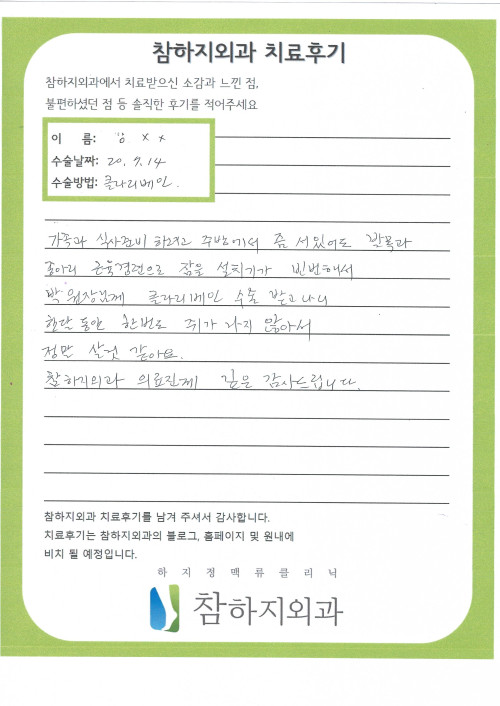 참하지외과 치료후기
참하지외과에서 치료받으신 소감과 느낀 점,
불편하셨던 점 등 솔직한 후기를 적어주세요
이 름: 강 X X
수술날짜: 20. 7. 14
수술방법: 클라리베인.
가족과 식사준비 하려고 주방에서 좀 서있어도 발목과
종아리 근육경련으로 잠을 설치기가 빈번해서
박 원장님께 클라리베인 수술 받고 나니
한달 동안 한번도 쥐가 나지 않아서
정말 살것 같아요.
참하지외과 의료진께 깊은 감사드립니다.
참하지외과 치료후기를 남겨 주셔서 감사합니다.
치료후기는 참하지외과의 블로그, 홈페이지 및 원내에
비치 될 예정입니다.
하지정맥류클리닉
참하지외과